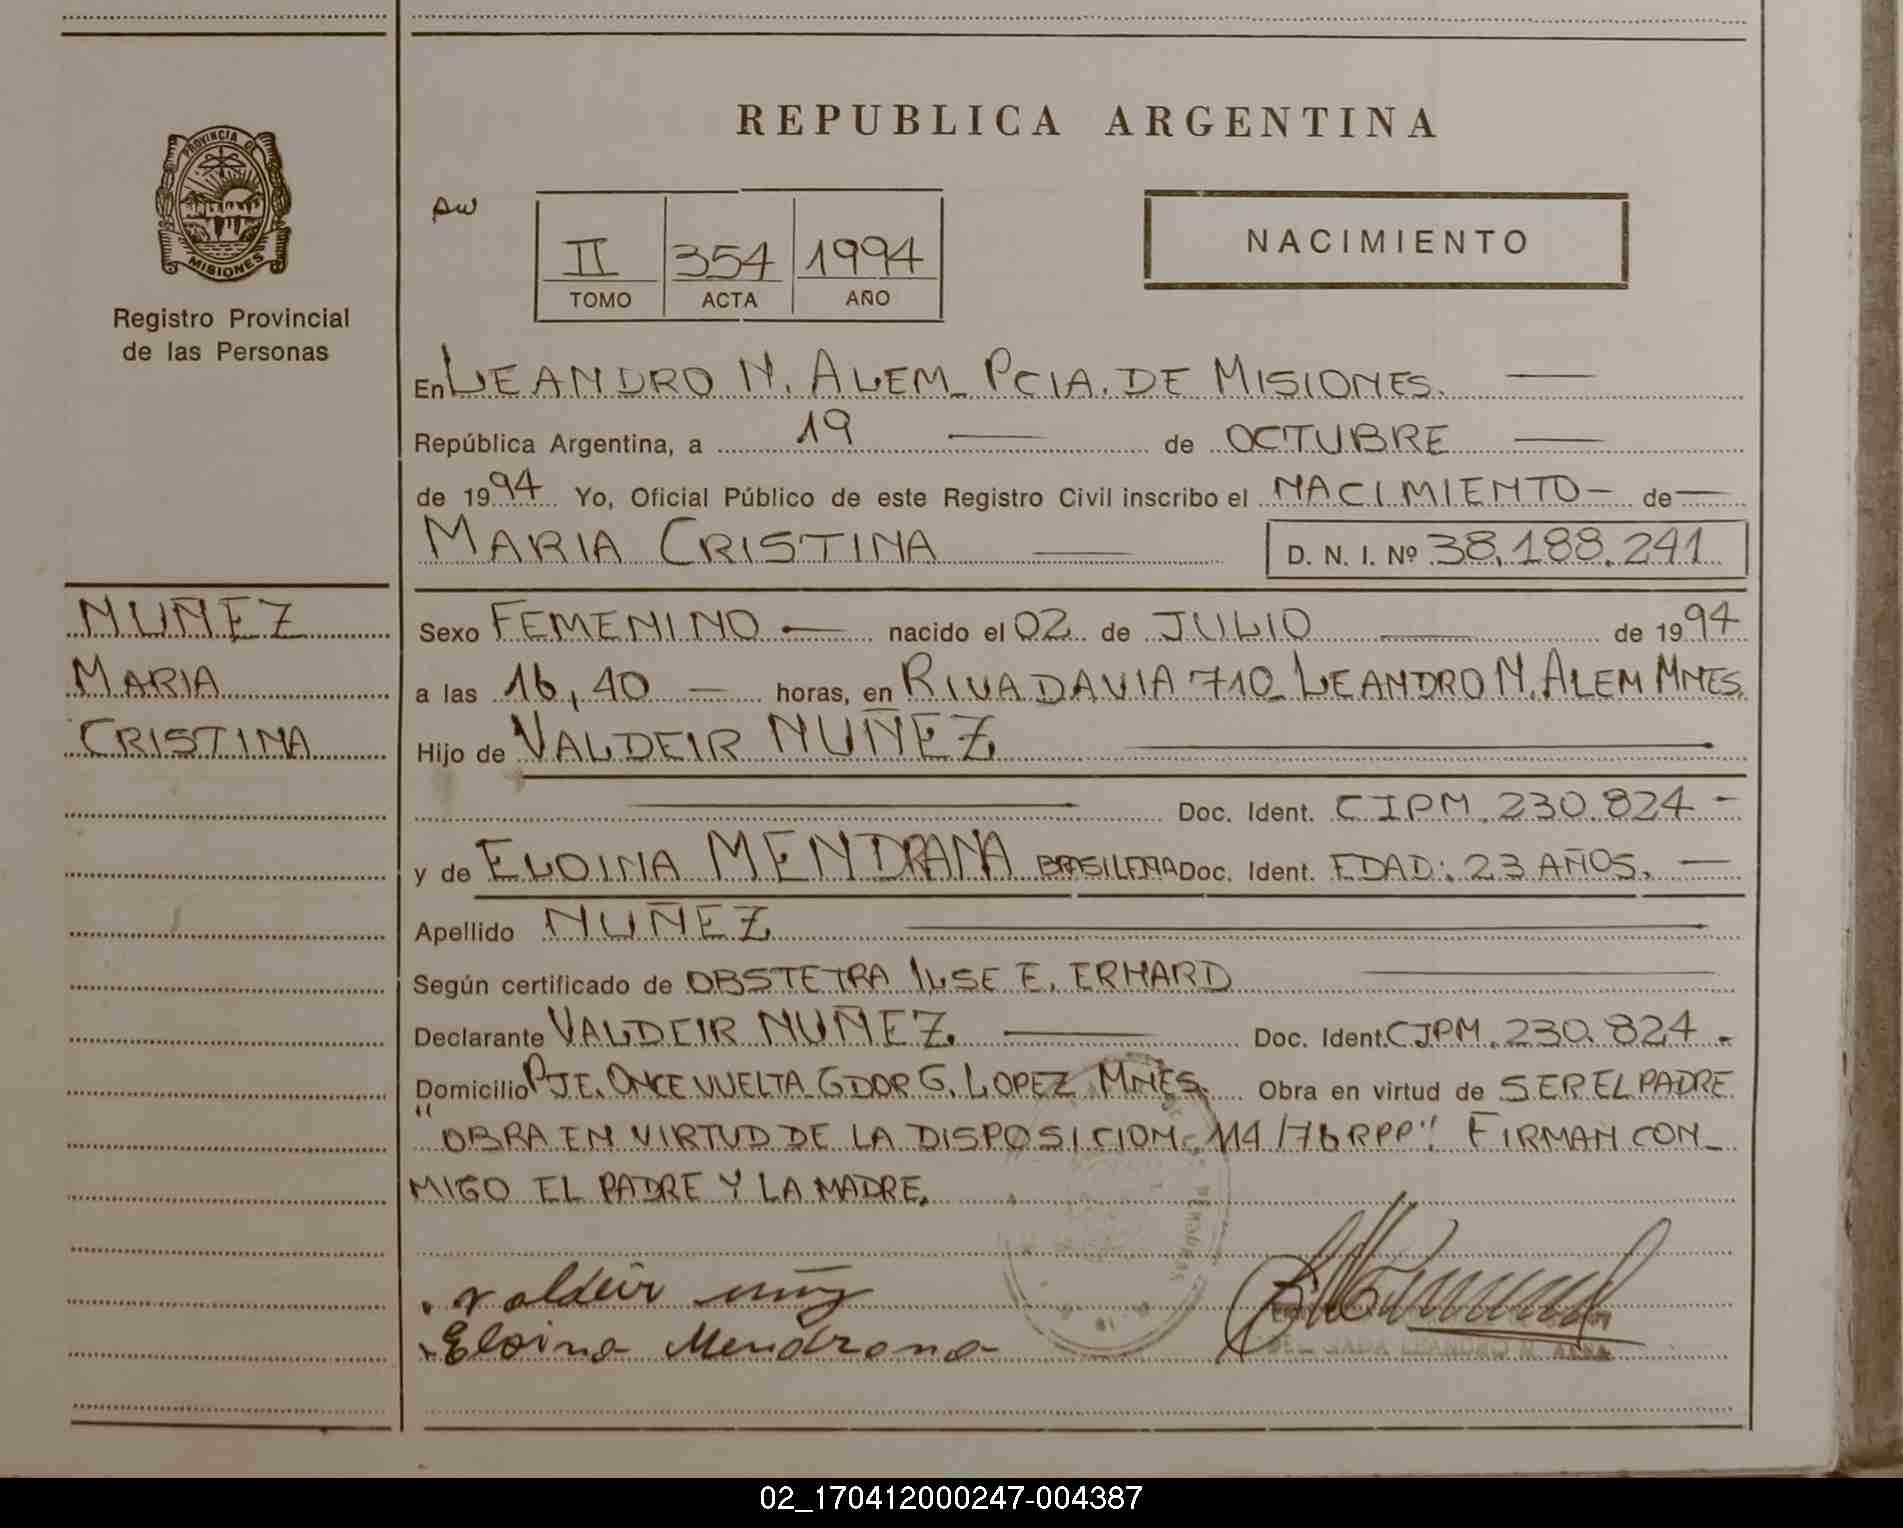 REPUBLICA ARGENTINA
PROVINCIA DE
MISIONES
Registro Provincial
de las Personas
II 354 1994
TOMO ACTA AÑO
NACIMIENTO
En LEANDRO N. ALEM_ PCIA. DE MISIONES. —
República Argentina, a 19 — de OCTUBRE —
de 1994 Yo, Oficial Público de este Registro Civil inscribo el NACIMIENTO - de —
MARIA CRISTINA — D. N. I. Nº 38.188.241
NUÑEZ
MARIA
CRISTINA
Sexo FEMENINO — nacido el 02 de JULIO — de 1994
a las 16,40 — horas, en RIVADAVIA 710_ LEANDRO N. ALEM MNES.
Hijo de VALDEIR NUÑEZ —
— Doc. Ident. CIPM. 230.824 -
y de ELOINA MENDRANA BRASILEÑA Doc. Ident. EDAD: 23 AÑOS. —
Apellido NUÑEZ —
Según certificado de OBSTETRA ILSE E. ERHARD —
Declarante VALDEIR NUÑEZ. — Doc. Ident. CIPM. 230.824 .-
Domicilio PJE. ONCE VUELTA GDOR G. LOPEZ MNES. Obra en virtud de SER EL PADRE
"OBRA EN VIRTUD DE LA DISPOSICION 114/76 RPP". FIRMAN CON_
MIGO EL PADRE Y LA MADRE.
Valdeir nuñez
Eloina Mendrana
LEANDRO N. ALEM
02_170412000247-004387